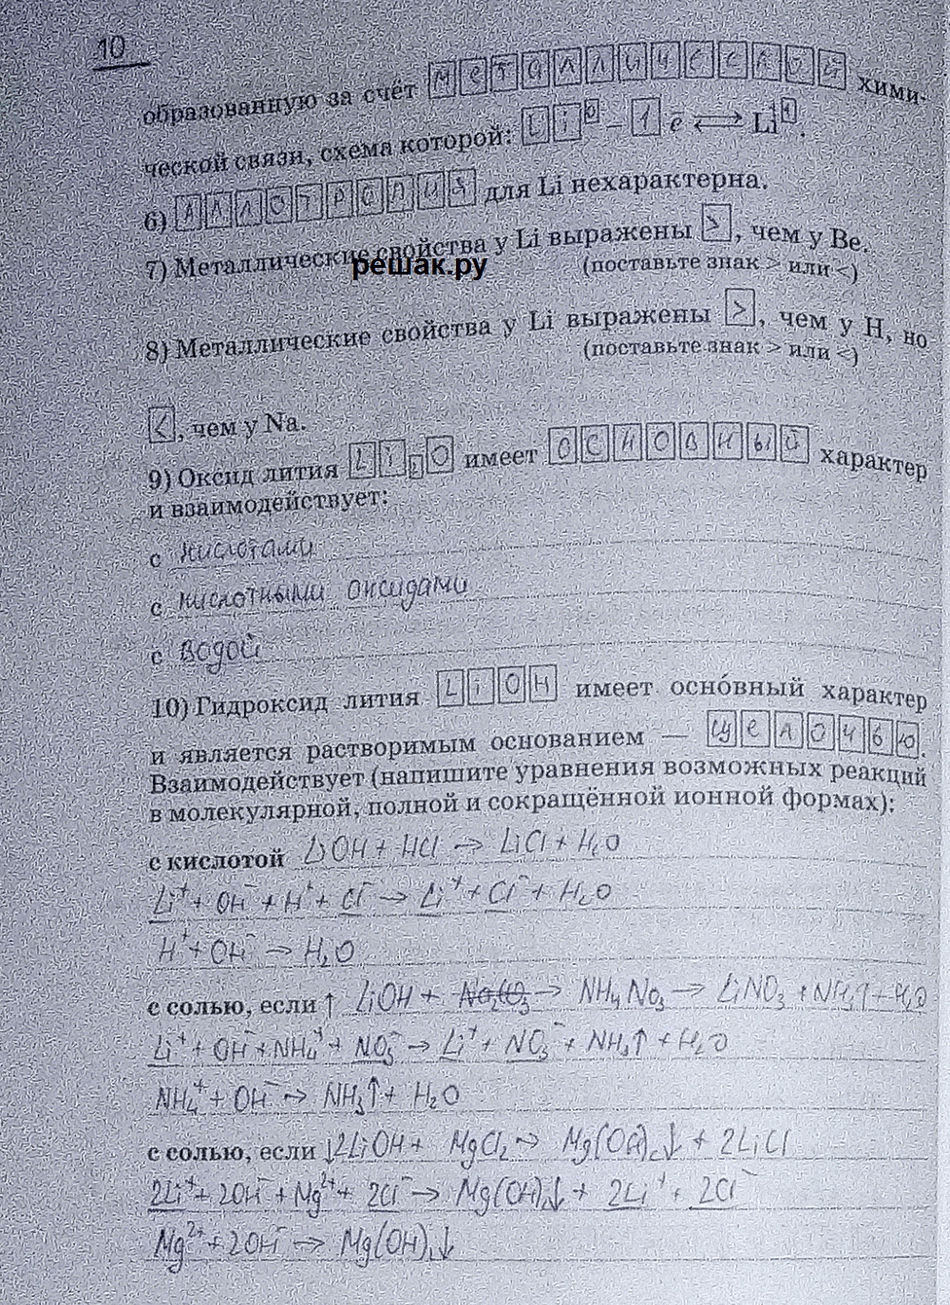 10
образованную за счёт металлической хими-
ческой связи, схема которой: Li⁰ – 1 ē ⟷ Li⁺¹.
6) Аллотропия для Li нехарактерна.
7) Металлические свойства у Li выражены >, чем у Be.
решак.ру
(поставьте знак > или <)
8) Металлические свойства у Li выражены >, чем у H, но
(поставьте знак > или <)
<, чем у Na.
9) Оксид лития Li₂O имеет основный характер
и взаимодействует:
с кислотами
с кислотными оксидами
с водой
10) Гидроксид лития LiOH имеет оснóвный характер
и является растворимым основанием — щелочью.
Взаимодействует (напишите уравнения возможных реакций
в молекулярной, полной и сокращённой ионной формах):
с кислотой LiOH + HCl → LiCl + H₂O
Li⁺ + OH⁻ + H⁺ + Cl⁻ → Li⁺ + Cl⁻ + H₂O
H⁺ + OH⁻ → H₂O
с солью, если ↑ LiOH + → NH₄NO₃ → LiNO₃ + NH₃↑ + H₂O
Li⁺ + OH⁻ + NH₄⁺ + NO₃⁻ → Li⁺ + NO₃⁻ + NH₃↑ + H₂O
NH₄⁺ + OH⁻ → NH₃↑ + H₂O
с солью, если ↓ 2LiOH + MgCl₂ → Mg(OH)₂↓ + 2LiCl
2Li⁺ + 2OH⁻ + Mg²⁺ + 2Cl⁻ → Mg(OH)₂↓ + 2Li⁺ + 2Cl⁻
Mg²⁺ + 2OH⁻ → Mg(OH)₂↓